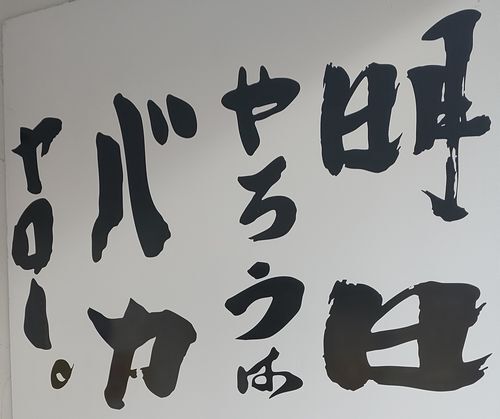 明日
やろうは
バカ
ヤロー。